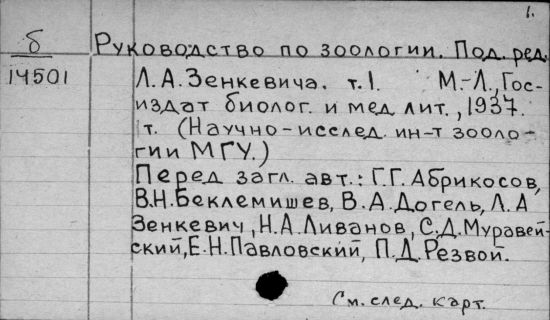 1.
б Руководство по зоологии. Под. ред.
14501 Л.А.Зенкевича. т.1. М.-Л., Гос-
издат биолог. и мед. лит., 1937.
т. (Научно-исслед. ин-т зооло-
гии МГУ.)
Перед загл. авт.: Г.Г.Абрикосов,
В.Н.Беклемишев, В.А.Догель, Л.А
Зенкевич, Н.А.Ливанов, С.Д.Муравей-
ский, Е.Н.Павловский, П.Д.Резвой.
См. след. карт.